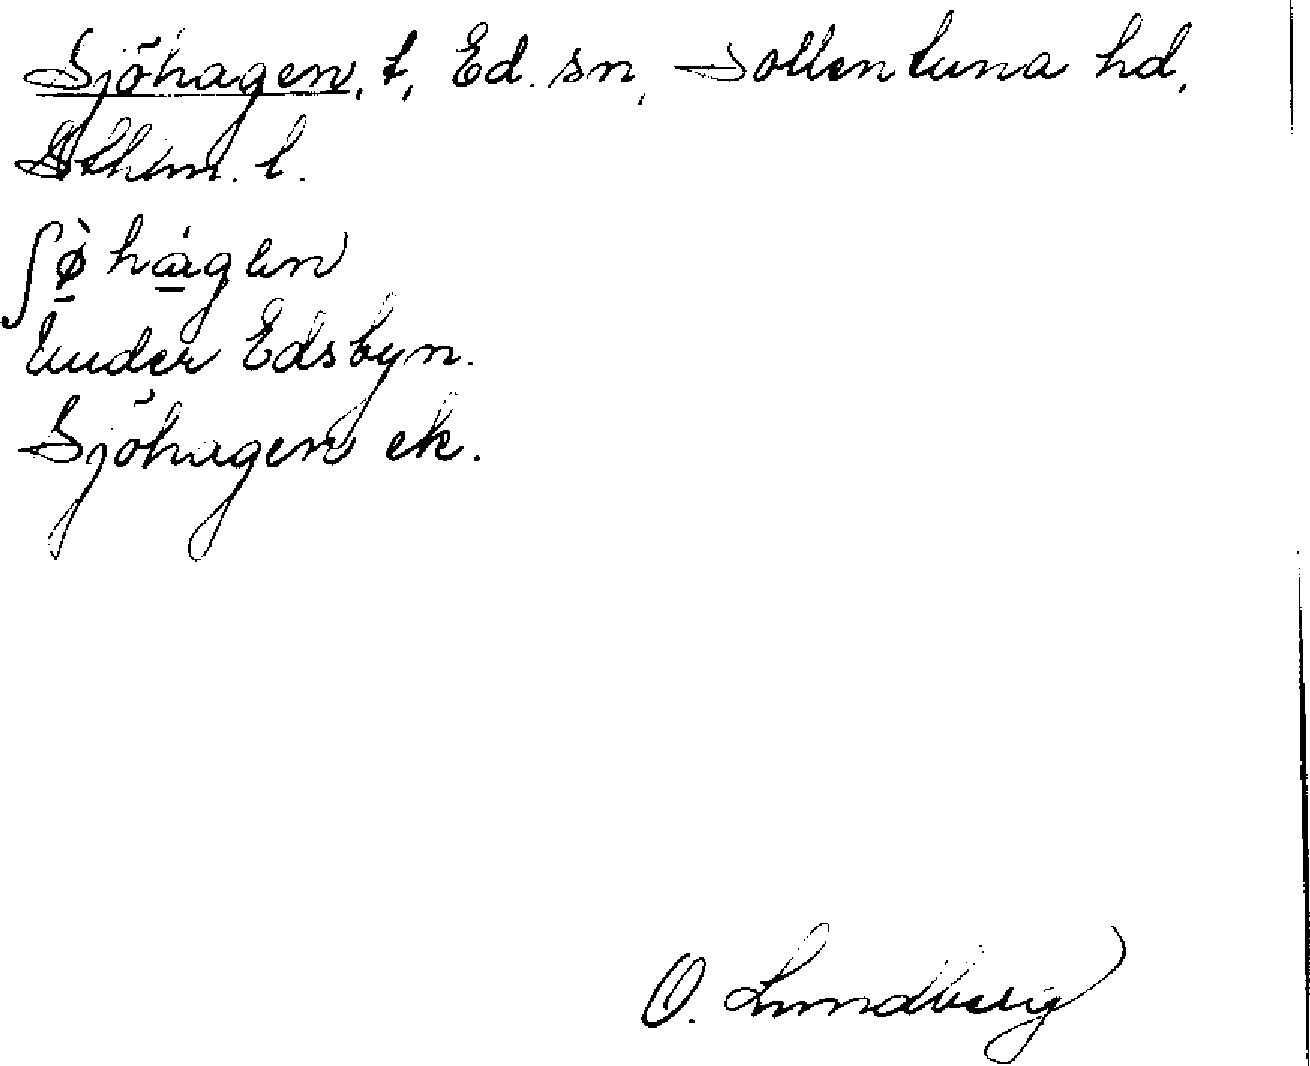 Sjöhagen, t, Ed. sn, Sollentuna hd,
Sthlm. l.
ʃø̀hágen
Under Edsbyn.
Sjöhagen ek.
O. Lundberg